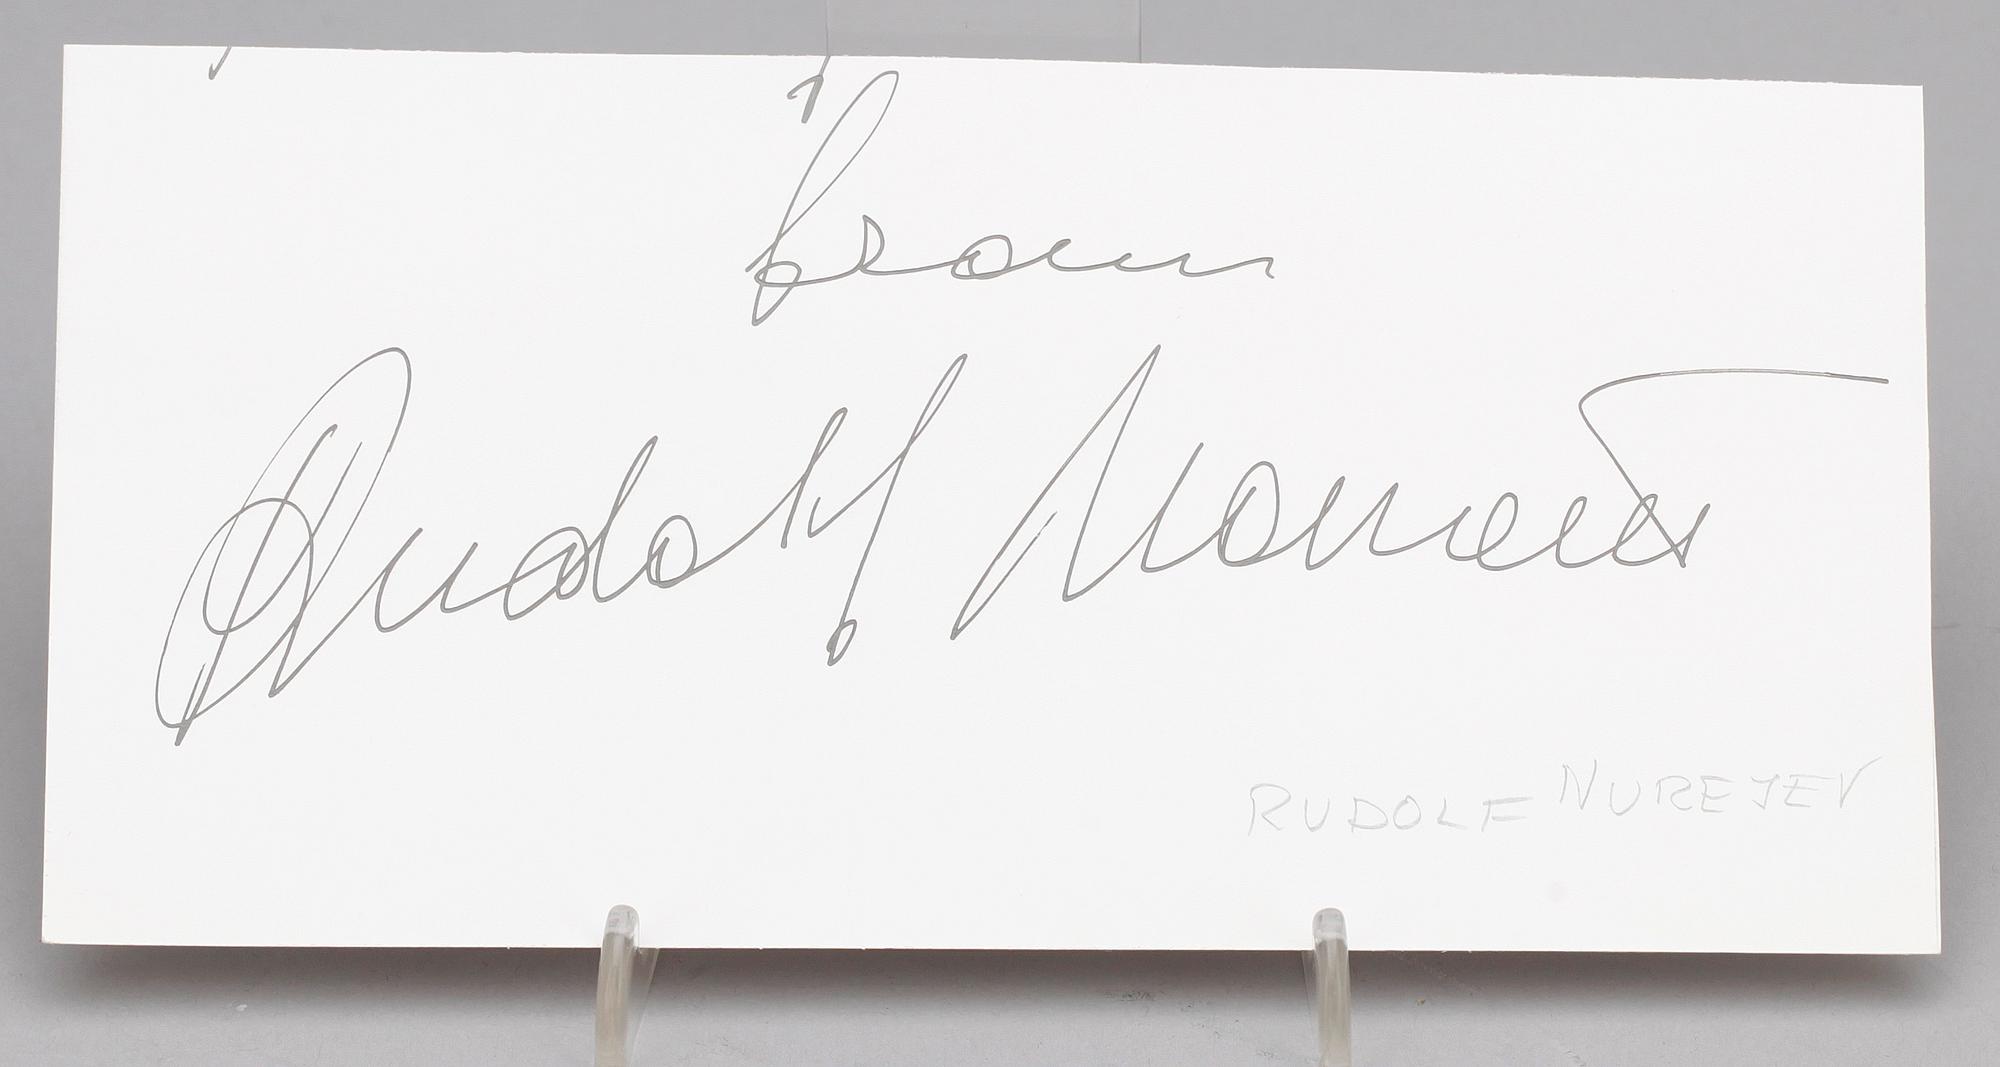 from
Rudolf Nureyev
RUDOLF NUREJEV